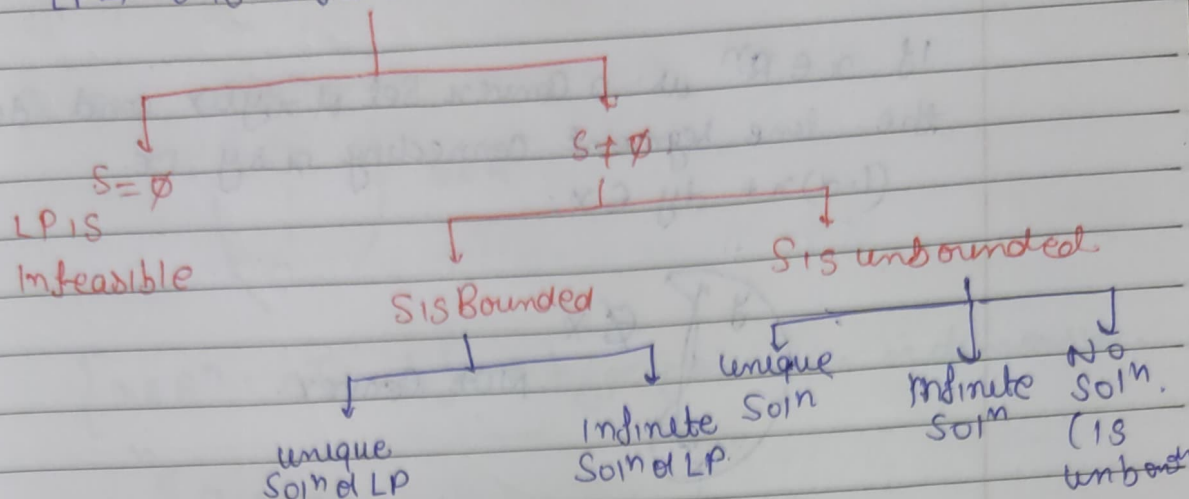 S = ∅
S ≠ ∅
LP IS
Infeasible
S is Bounded
S is unbounded
unique
Soln of LP
Infinete
Soln of LP.
unique
Soln
Infinete
Soln
No
Soln.
(is